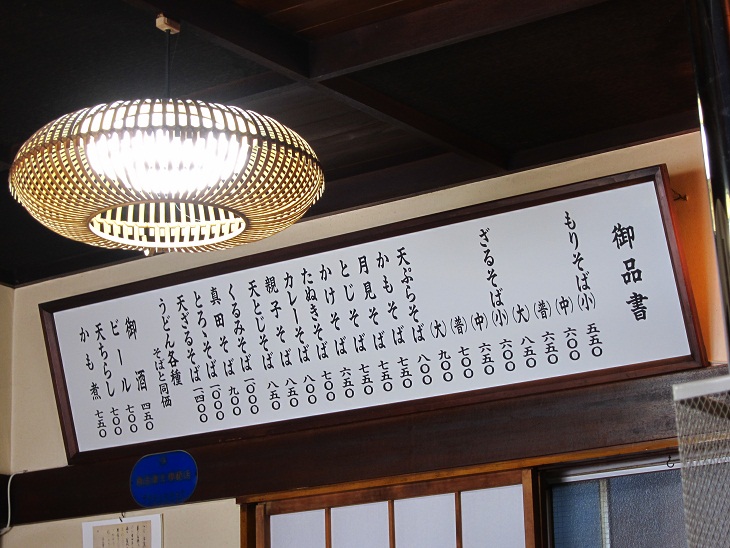 御品書
もりそば(小) 五五〇
(中) 六〇〇
(普) 六五〇
(大) 八五〇
ざるそば(小) 六〇〇
(中) 六五〇
(普) 七〇〇
(大) 九〇〇
天ぷらそば 八〇〇
かもそば 七五〇
月見そば 七五〇
とじそば 七五〇
かけそば 六五〇
たぬきそば 七〇〇
カレーそば 八〇〇
親子そば 八五〇
天とじそば 八五〇
くるみそば 一〇〇〇
真田そば 九〇〇
とろろそば 一〇〇〇
天ざるそば 一四〇〇
うどん各種
そばと同価
御酒 四五〇
ビール 七〇〇
天ちらし 七〇〇
かも煮 七五〇